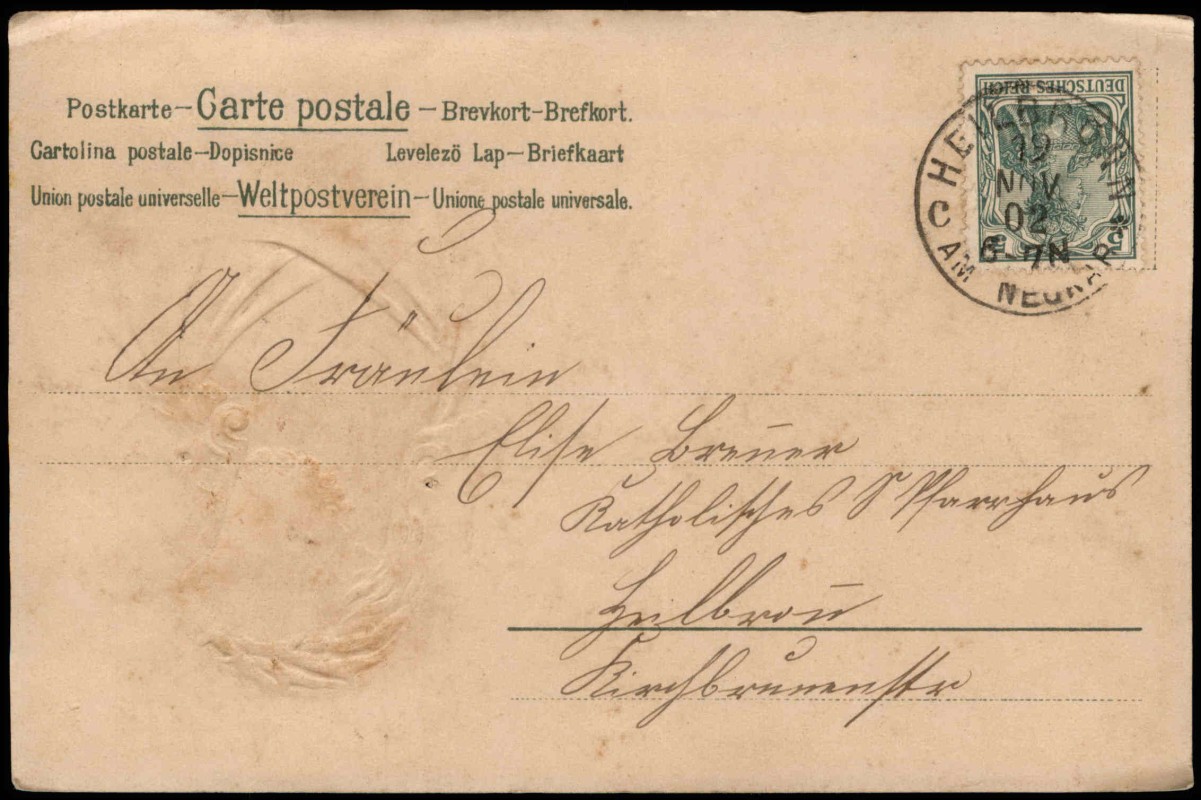 Postkarte – Carte postale – Brevkort–Brefkort.
Cartolina postale–Dopisnice Levelezö Lap–Briefkaart
Union postale universelle–Weltpostverein–Unione postale universale.
DEUTSCHES REICH
5
HEILBRONN
19
NOV
02
6-7N
C
AM NECKAR
An Fräulein
Elise Breuer
Katholisches Pfarrhaus
Heilbron̄
Kirchbrunenstr